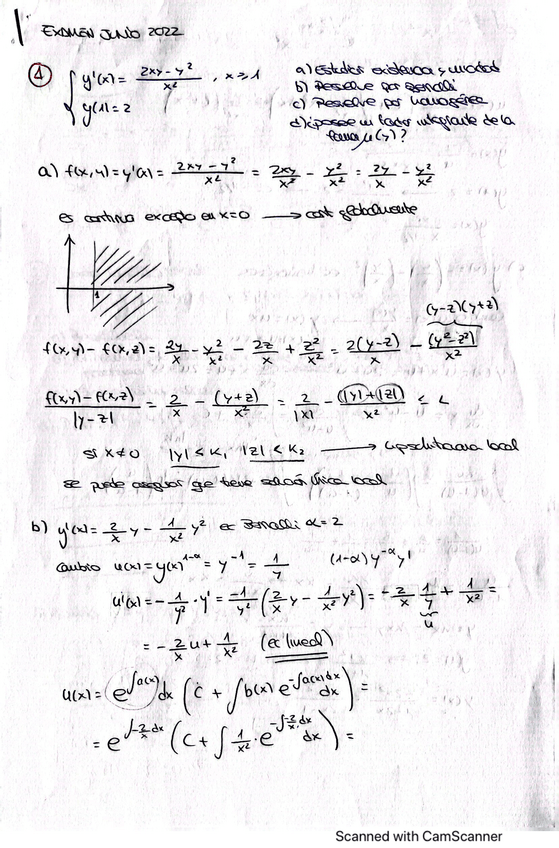 EXAMEN JUNIO 2022
④ { y'(x) = (2xy - y²)/x² , x ≥ 1
y(1) = 2
a) Estudiar existencia y unicidad
b) Resolver por Bernoulli
c) Resolver por homogénea
d) ¿posee un factor integrante de la forma μ(y)?
a) f(x,y) = y'(x) = (2xy - y²)/x² = 2xy/x² - y²/x² = 2y/x - y²/x²
es continua excepto en x=0 → cont globalmente
1
(y-z)(y+z)
f(x,y) - f(x,z) = 2y/x - y²/x² - 2z/x + z²/x² = 2(y-z)/x - (y²-z²)/x²
(f(x,y) - f(x,z))/|y-z| = 2/x - (y+z)/x² = 2/|x| - (|y|+|z|)/x² ≤ L
si x≠0 |y| ≤ K₁ |z| ≤ K₂ → Lipschitziana local
se puede asegurar que tiene solución única local
b) y'(x) = 2/x y - 1/x² y² ec Bernoulli α=2
cambio u(x) = y(x)^(1-α) = y⁻¹ = 1/y (1-α) y^(-α) y'
u'(x) = -1/y² · y' = -1/y² (2/x y - 1/x² y²) = -2/x 1/y + 1/x² =
u
= -2/x u + 1/x² (ec lineal)
u(x) = e^(∫a(x)) dx (C + ∫b(x) e^(-∫a(x)dx) dx) =
= e^(∫-2/x dx) (C + ∫ 1/x² · e^(-∫-2/x dx) dx) =
Scanned with CamScanner